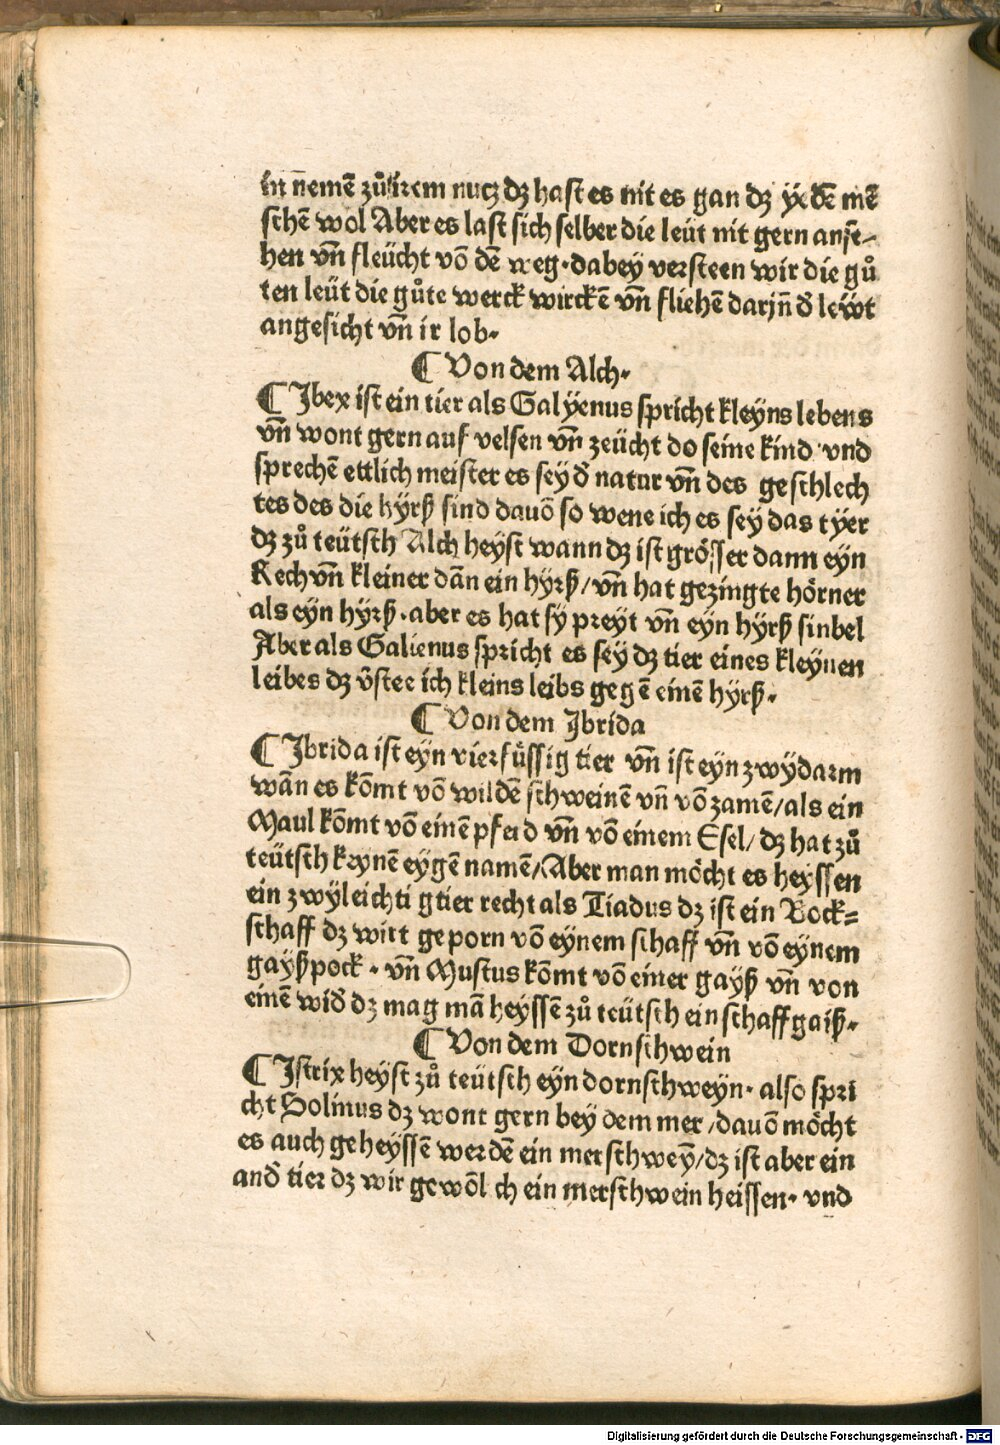 in nemẽ zů irem nutz dz hast es nit es gan dz yedẽ mẽ
schẽ wol Aber es last sich selber die leüt nit gern anse⸗
hen vñ fleücht võ dẽ weg· dabey versteen wir die gů
ten leüt die gůte werck wirckẽ vñ fliehẽ darjñ ð lewt
angesicht vñ ir lob·
¶ Von dem Alch·
¶ Ibex ist ein tier als Galyenus spricht kleyns lebens
vñ wont gern auf velsen vñ zeücht do seine kind vnd
sprechẽ ettlich meister es sey ð natur vñ des geschlech
tes des die hyrß sind dauõ so wene ich es sey das tyer
dz zů teütsch Alch heyst wann dz ist grösser dann eyn
Rech vñ kleiner dãn ein hyrß/ vñ hat gezingte hörner
als eyn hyrß· aber es hat sy preyt vñ eyn hyrß sinbel
Aber als Galienus spricht es sey dz tier eines kleynen
leibes dz v̄stee ich kleins leibs gegẽ einẽ hyrß·
¶ Von dem Ibrida
¶ Ibrida ist eyn vierfüssig tier vñ ist eyn zwydarm
wãn es kõmt võ wildẽ schweinẽ vñ võ zamẽ/ als ein
Maul kõmt võ einẽ pferd vñ võ einem Esel/ dz hat zů
teütsch keynẽ eygẽ namẽ/ Aber man möcht es heyssen
ein zwyleichti g tier recht als Tiadus dz ist ein Bock⸗
schaff dz wirt geporn võ eynem schaff vñ võ eynem
gayßpock· vñ Mustus kõmt võ einer gayß vñ von
einẽ wið dz mag mã heyssẽ zů teütsch ein schaffgaiß·
¶ Von dem Dornschwein
¶ Istrix heyst zů teütsch eyn dornschweyn· also spri
cht Solinus dz wont gern bey dem mer/ dauõ möcht
es auch geheyssẽ werdẽ ein merschweȳ/ dz ist aber ein
anð tier dz wir gewõl ch ein merschwein heissen· vnd
Digitalisierung gefördert durch die Deutsche Forschungsgemeinschaft - DFG